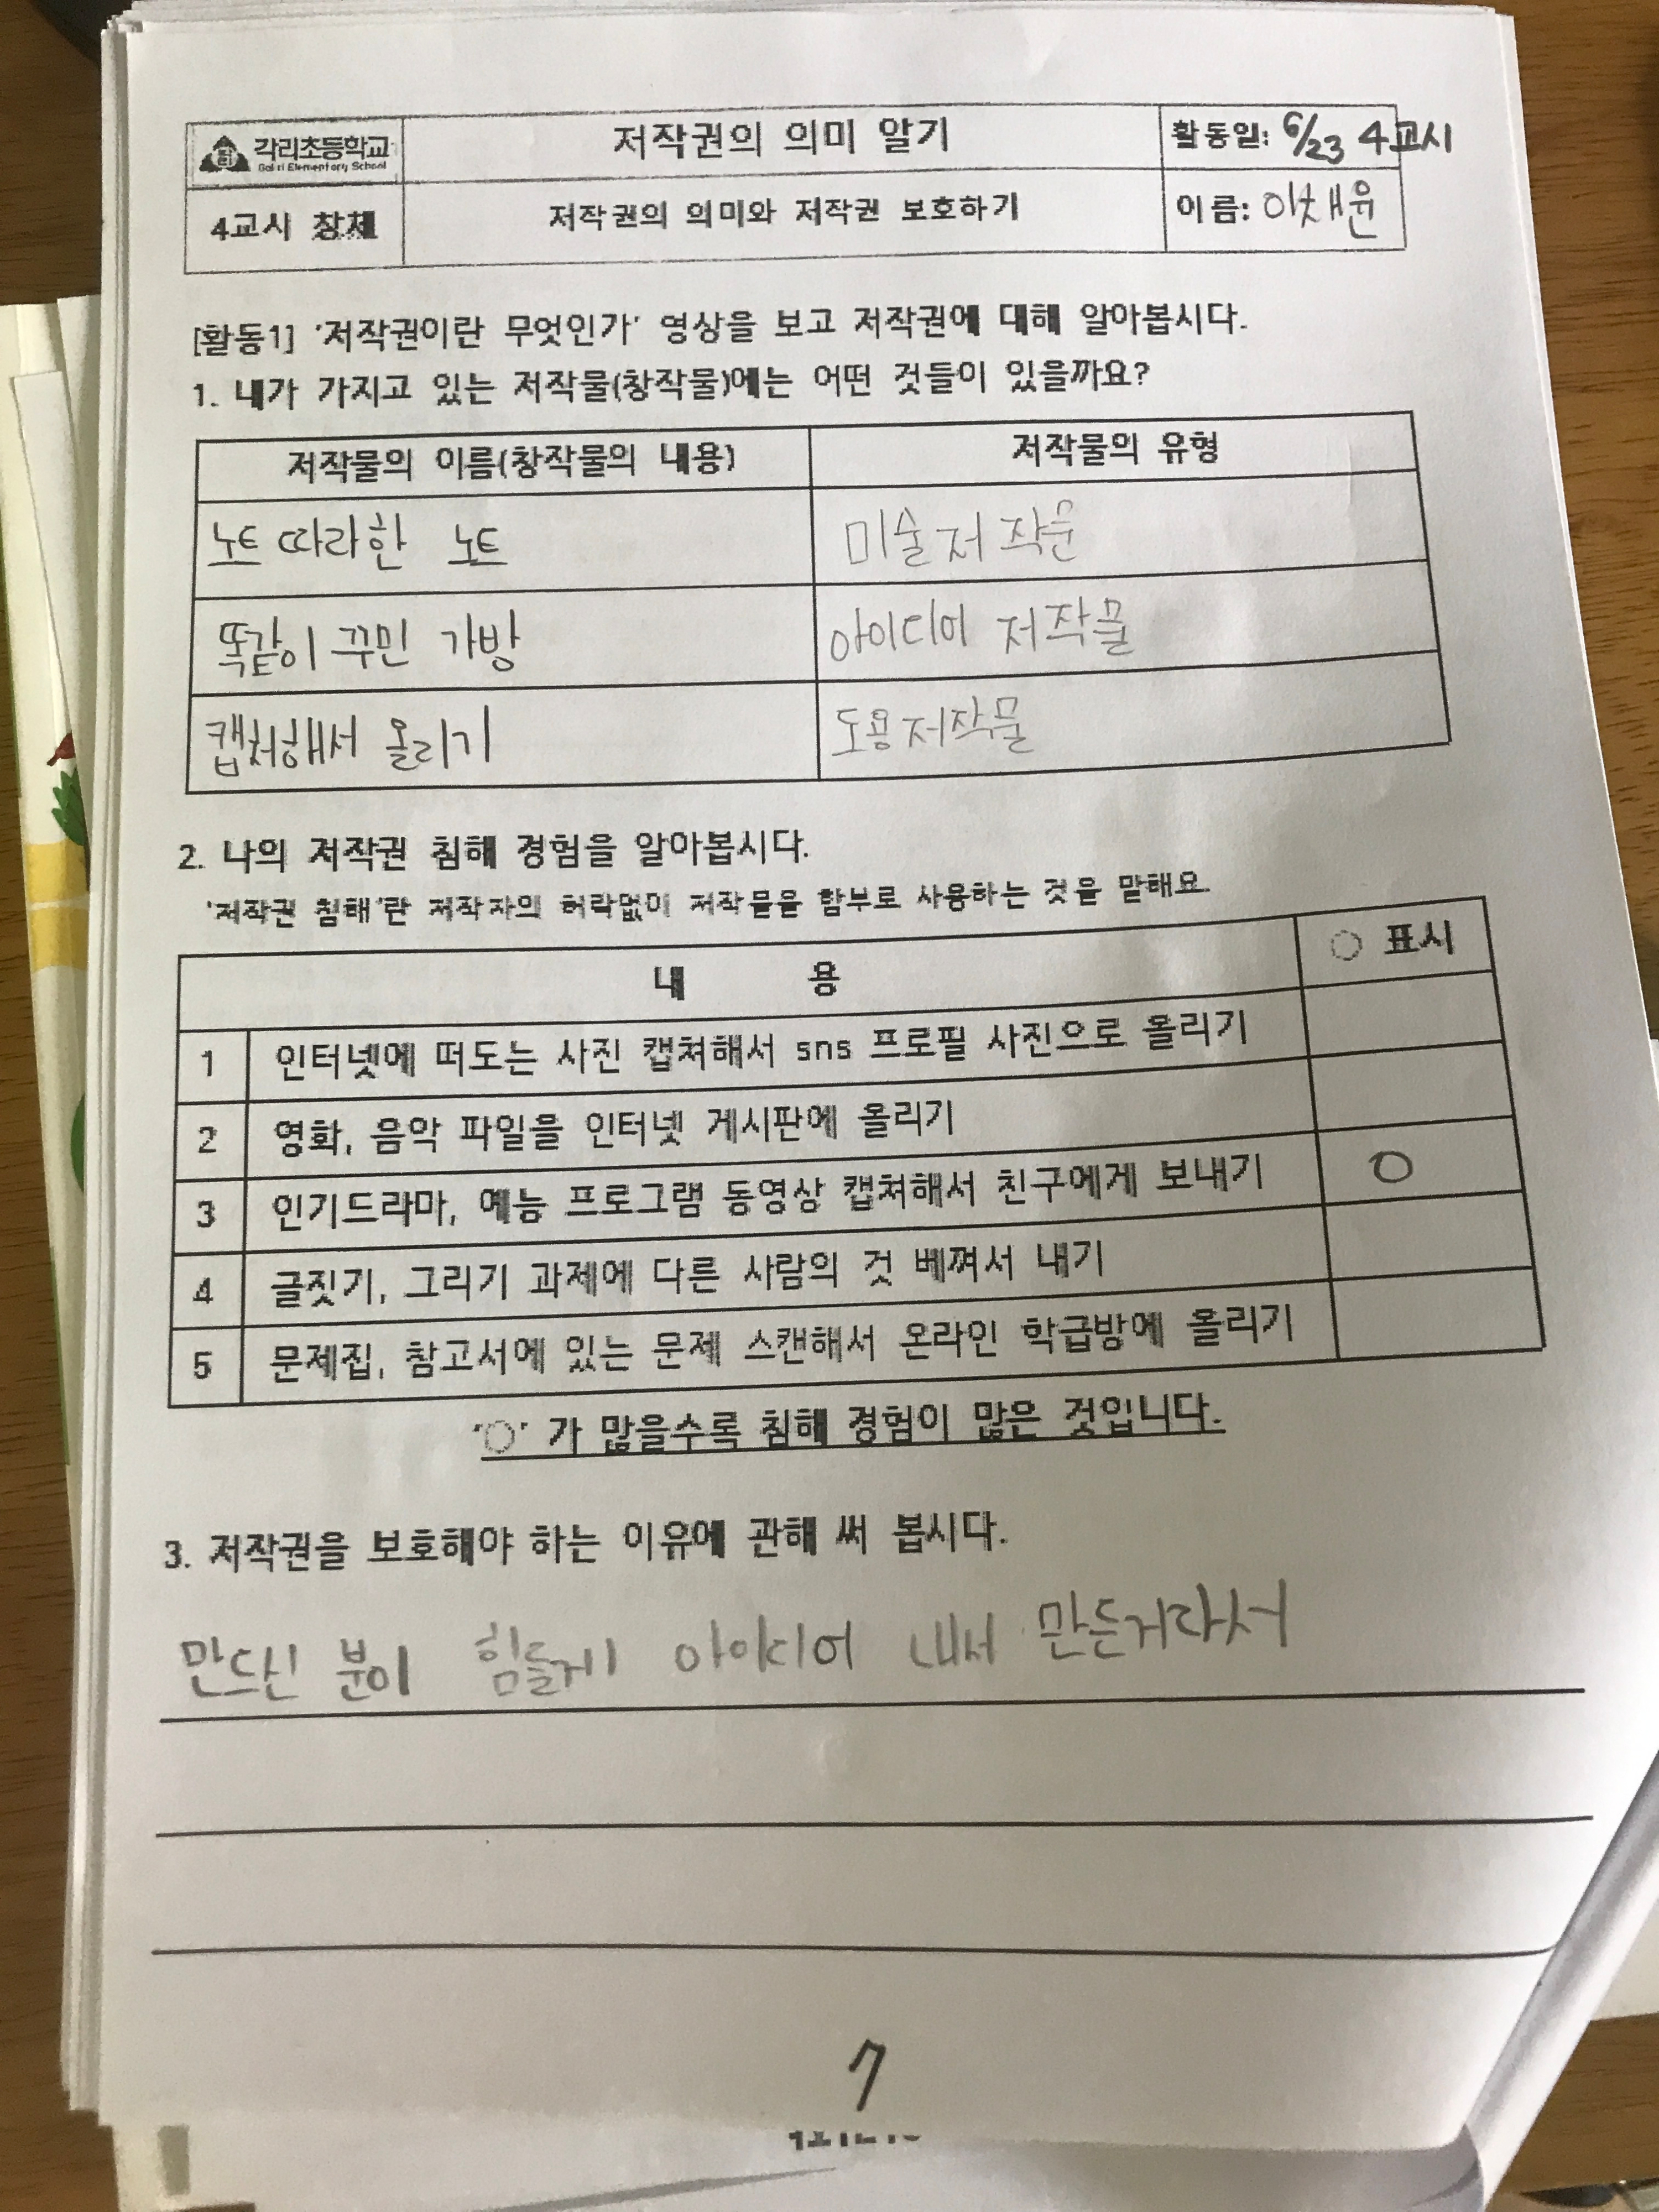 각리초등학교
Gakri Elementary School
저작권의 의미 알기
활동일: 6/23 4교시
4교시 창체
저작권의 의미와 저작권 보호하기
이름: 이채윤
[활동1] '저작권이란 무엇인가' 영상을 보고 저작권에 대해 알아봅시다.
1. 내가 가지고 있는 저작물(창작물)에는 어떤 것들이 있을까요?
저작물의 이름(창작물의 내용) 저작물의 유형
노트 따라한 노트 미술저작문
똑같이 꾸민 가방 아이디어 저작물
캡처해서 올리기 도용저작물
2. 나의 저작권 침해 경험을 알아봅시다.
'저작권 침해'란 저작자의 허락없이 저작물을 함부로 사용하는 것을 말해요.
내 용 ○ 표시
1 인터넷에 떠도는 사진 캡쳐해서 sns 프로필 사진으로 올리기
2 영화, 음악 파일을 인터넷 게시판에 올리기
3 인기드라마, 예능 프로그램 동영상 캡쳐해서 친구에게 보내기 ○
4 글짓기, 그리기 과제에 다른 사람의 것 베껴서 내기
5 문제집, 참고서에 있는 문제 스캔해서 온라인 학급방에 올리기
'○' 가 많을수록 침해 경험이 많은 것입니다.
3. 저작권을 보호해야 하는 이유에 관해 써 봅시다.
만드신 분이 힘들게 아이디어 내서 만든거라서
7